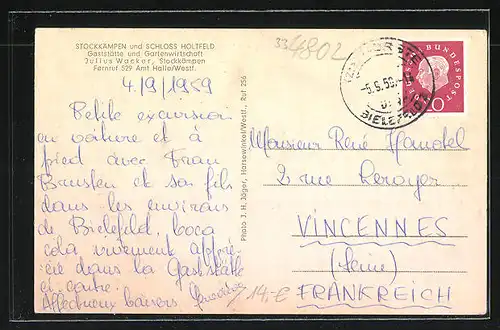 STOCKKÄMPEN und SCHLOSS HOLTFELD
Gaststätte und Gartenwirtschaft
Julius Wacker, Stockkämpen
Fernruf 529 Amt Halle/Westf.
4/9/1959
Petite excursion
en voiture et à
pied avec Frau
et son fils
dans les environs
de Bielefeld. Coca
cola vivement appré-
ciée dans la Gaststätte
ci-contre.
Affectueux baisers.
Photo J. H. Jäger, Harsewinkel/Westf., Ruf 256
334802
-5.9.59.
BIELEFELD
DEUTSCHE BUNDESPOST
Monsieur René
2 rue
VINCENNES
(Seine)
FRANKREICH
14,-€